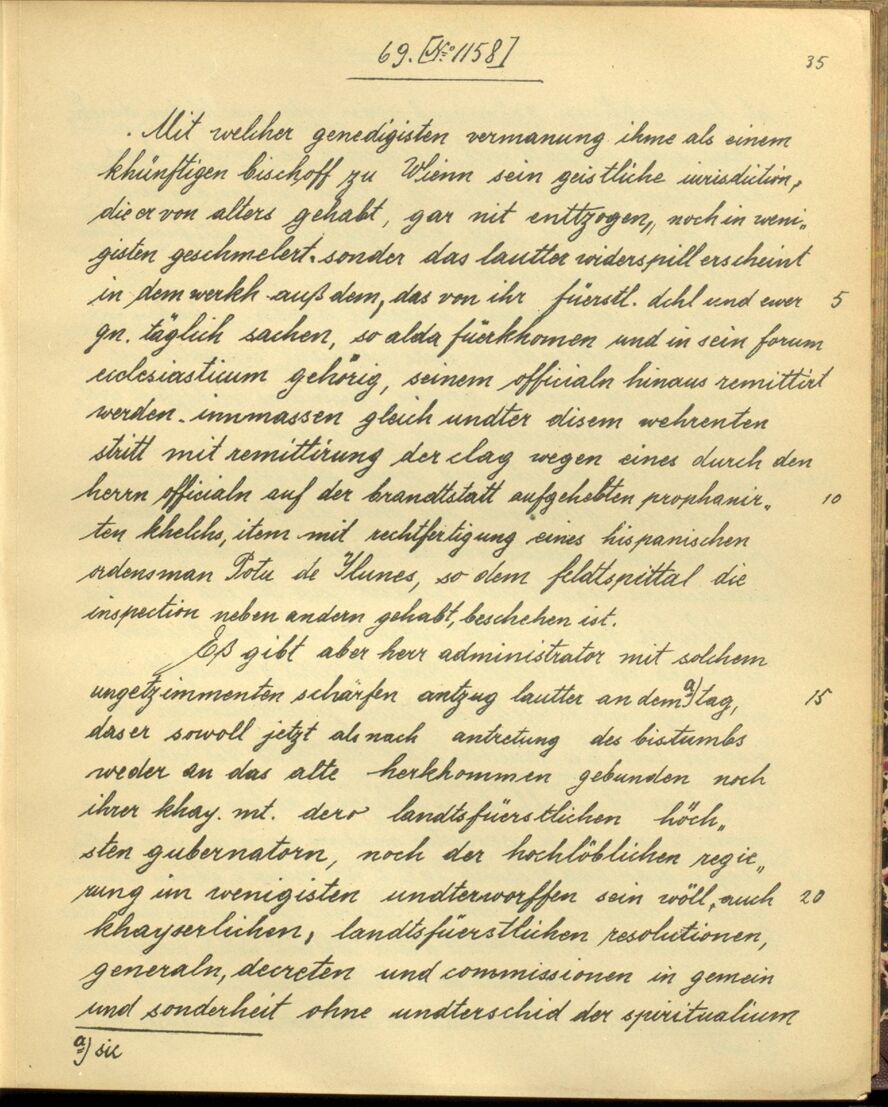 69. [No 1158]
35
Mit welcher genedigisten vermanung ihme als einem
khünftigen bischoff zu Wienn sein geistliche iurisdiction,
die er von alters gehabt, gar nit enttzogen, noch in weni„
gisten geschmelert. sonder das lautter widerspill erscheint
in dem werkh auß dem, das von ihr füerstl. dchl und ewer 5
gn. täglich sachen, so alda fürkhomen und in sein forum
ecclesiasticum gehörig, seinem officialn hinaus remittirt
werden. innmassen gleich undter disem wehrenten
stritt mit remittirung der clag wegen eines durch den
herrn officialn auf der brandtstatt aufgehebten prophanir„ 10
ten khelchs, item mit rechtfertigung eines hispanischen
ordensman Potu de Ylunes, so dem feldtspittal die
inspection neben andern gehabt, beschehen ist.
Eß gibt aber herr administrator mit solchem
ungetzimmenten schärfen antzug lautter an dem a) tag, 15
das er sowoll jetzt als nach antretung des bistumbs
weder an das alte herkhommen gebunden noch
ihrer khay. mt. dero landtsfüerstlichen höch„
sten gubernatorn, noch der hochlöblichen regie„
rung im wenigisten undterworffen sein wöll, auch 20
khayserlichen, landtsfüerstlichen resolutionen,
generaln, decreten und commissionen in gemein
und sonderheit ohne undterschid der spiritualium
a) sic